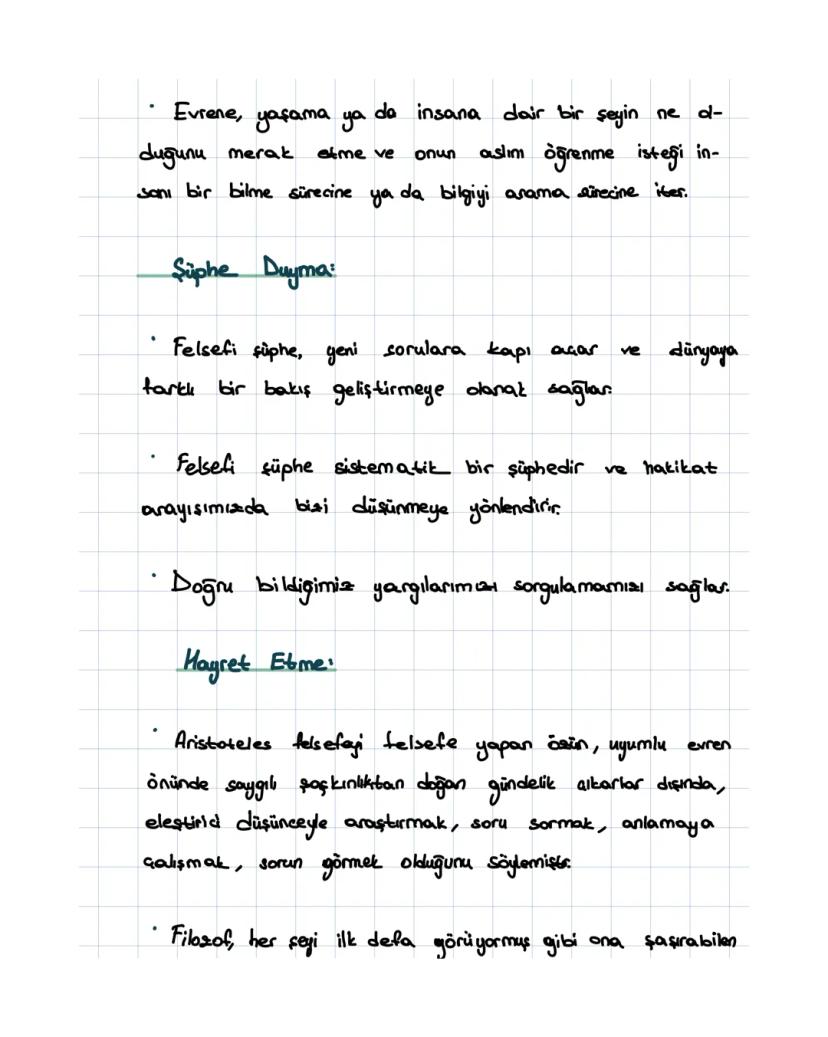 · Evrene, yaşama ya da insana dair bir şeyin ne ol-
duğunu merak etme ve onun aslını öğrenme isteği in-
sanı bir bilme sürecine ya da bilgiyi arama sürecine iter.
Şüphe Duyma:
· Felsefi şüphe, yeni sorulara kapı açar ve dünyaya
farklı bir bakış geliştirmeye olanak sağlar.
· Felsefi şüphe sistematik bir şüphedir ve hakikat
arayışımızda bizi düşünmeye yönlendirir.
· Doğru bildiğimiz yargılarımızı sorgulamamızı sağlar.
Hayret Etme:
· Aristoteles felsefeyi felsefe yapan özün, uyumlu evren
önünde saygılı şaşkınlıktan doğan gündelik çıkarlar dışında,
eleştirici düşünceyle araştırmak, soru sormak, anlamaya
çalışmak, sorun görmek olduğunu söylemiştir.
· Filozof, her şeyi ilk defa görüyormuş gibi ona şaşırabilen